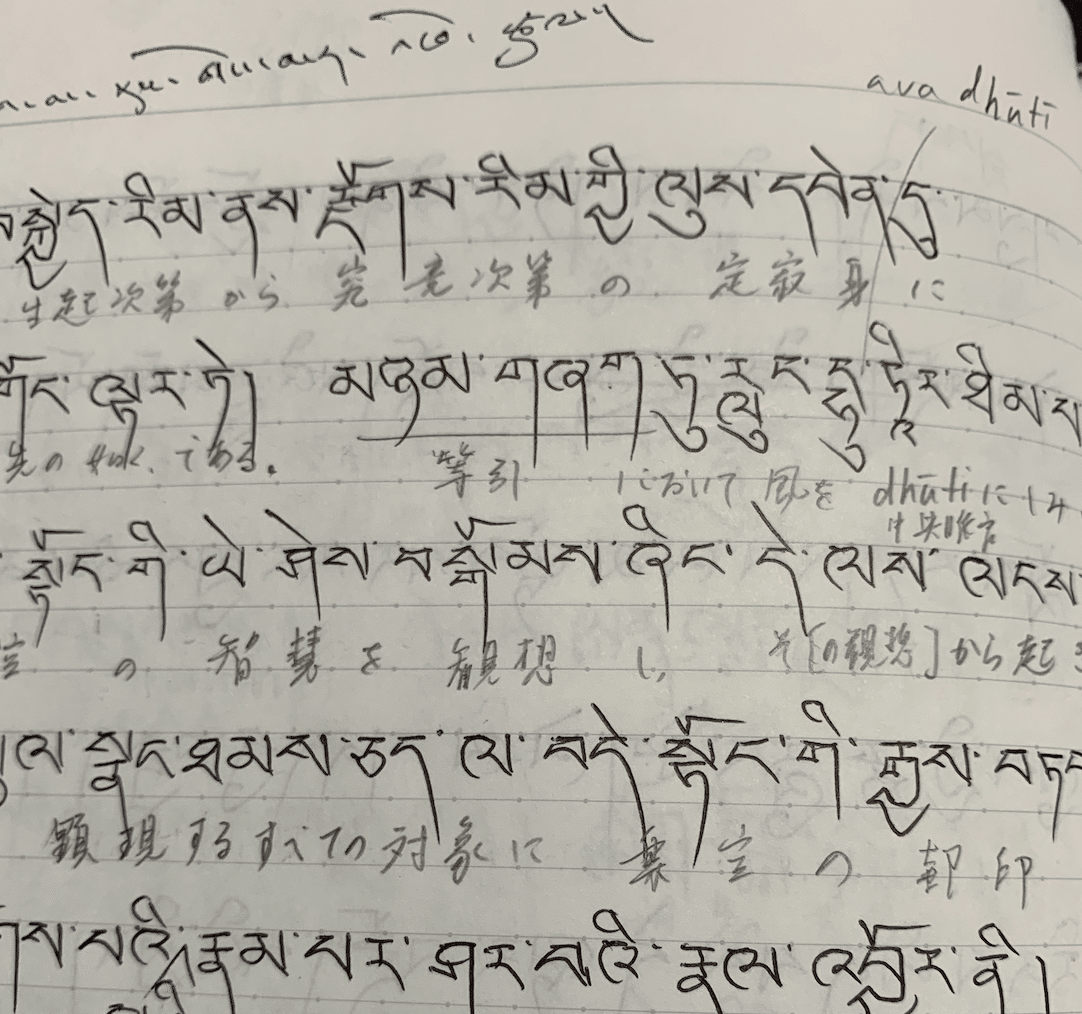 ava dhūti
བསྐྱེད་རིམ་ནས་རྫོགས་རིམ་གྱི་ལུས་དབེན་དུ
生起次第 から 究竟次第 の 定寂身 に
གོང་ལྟར་ཏེ། མཉམ་གཞག་ཏུ་རླུང་དྷཱུ་ཏིར་ཐིམས
先の如く である。 等引 において 風を dhūtiに
中央脈管
སྟོང་གི་ཡེ་ཤེས་བསྒོམས་ཞིང་དེ་ལས་ལངས
空 の 智慧を 観想 し、 そ[の観想]から起き
ལ་སྣང་ཐམས་ཅད་ལ་བདེ་སྟོང་གི་རྒྱས་བཏབ
顕現するすべての対象に 楽空 の 封印
པའི་རྣམ་པར་ཤར་བའི་རྣལ་འབྱོར་ནི།